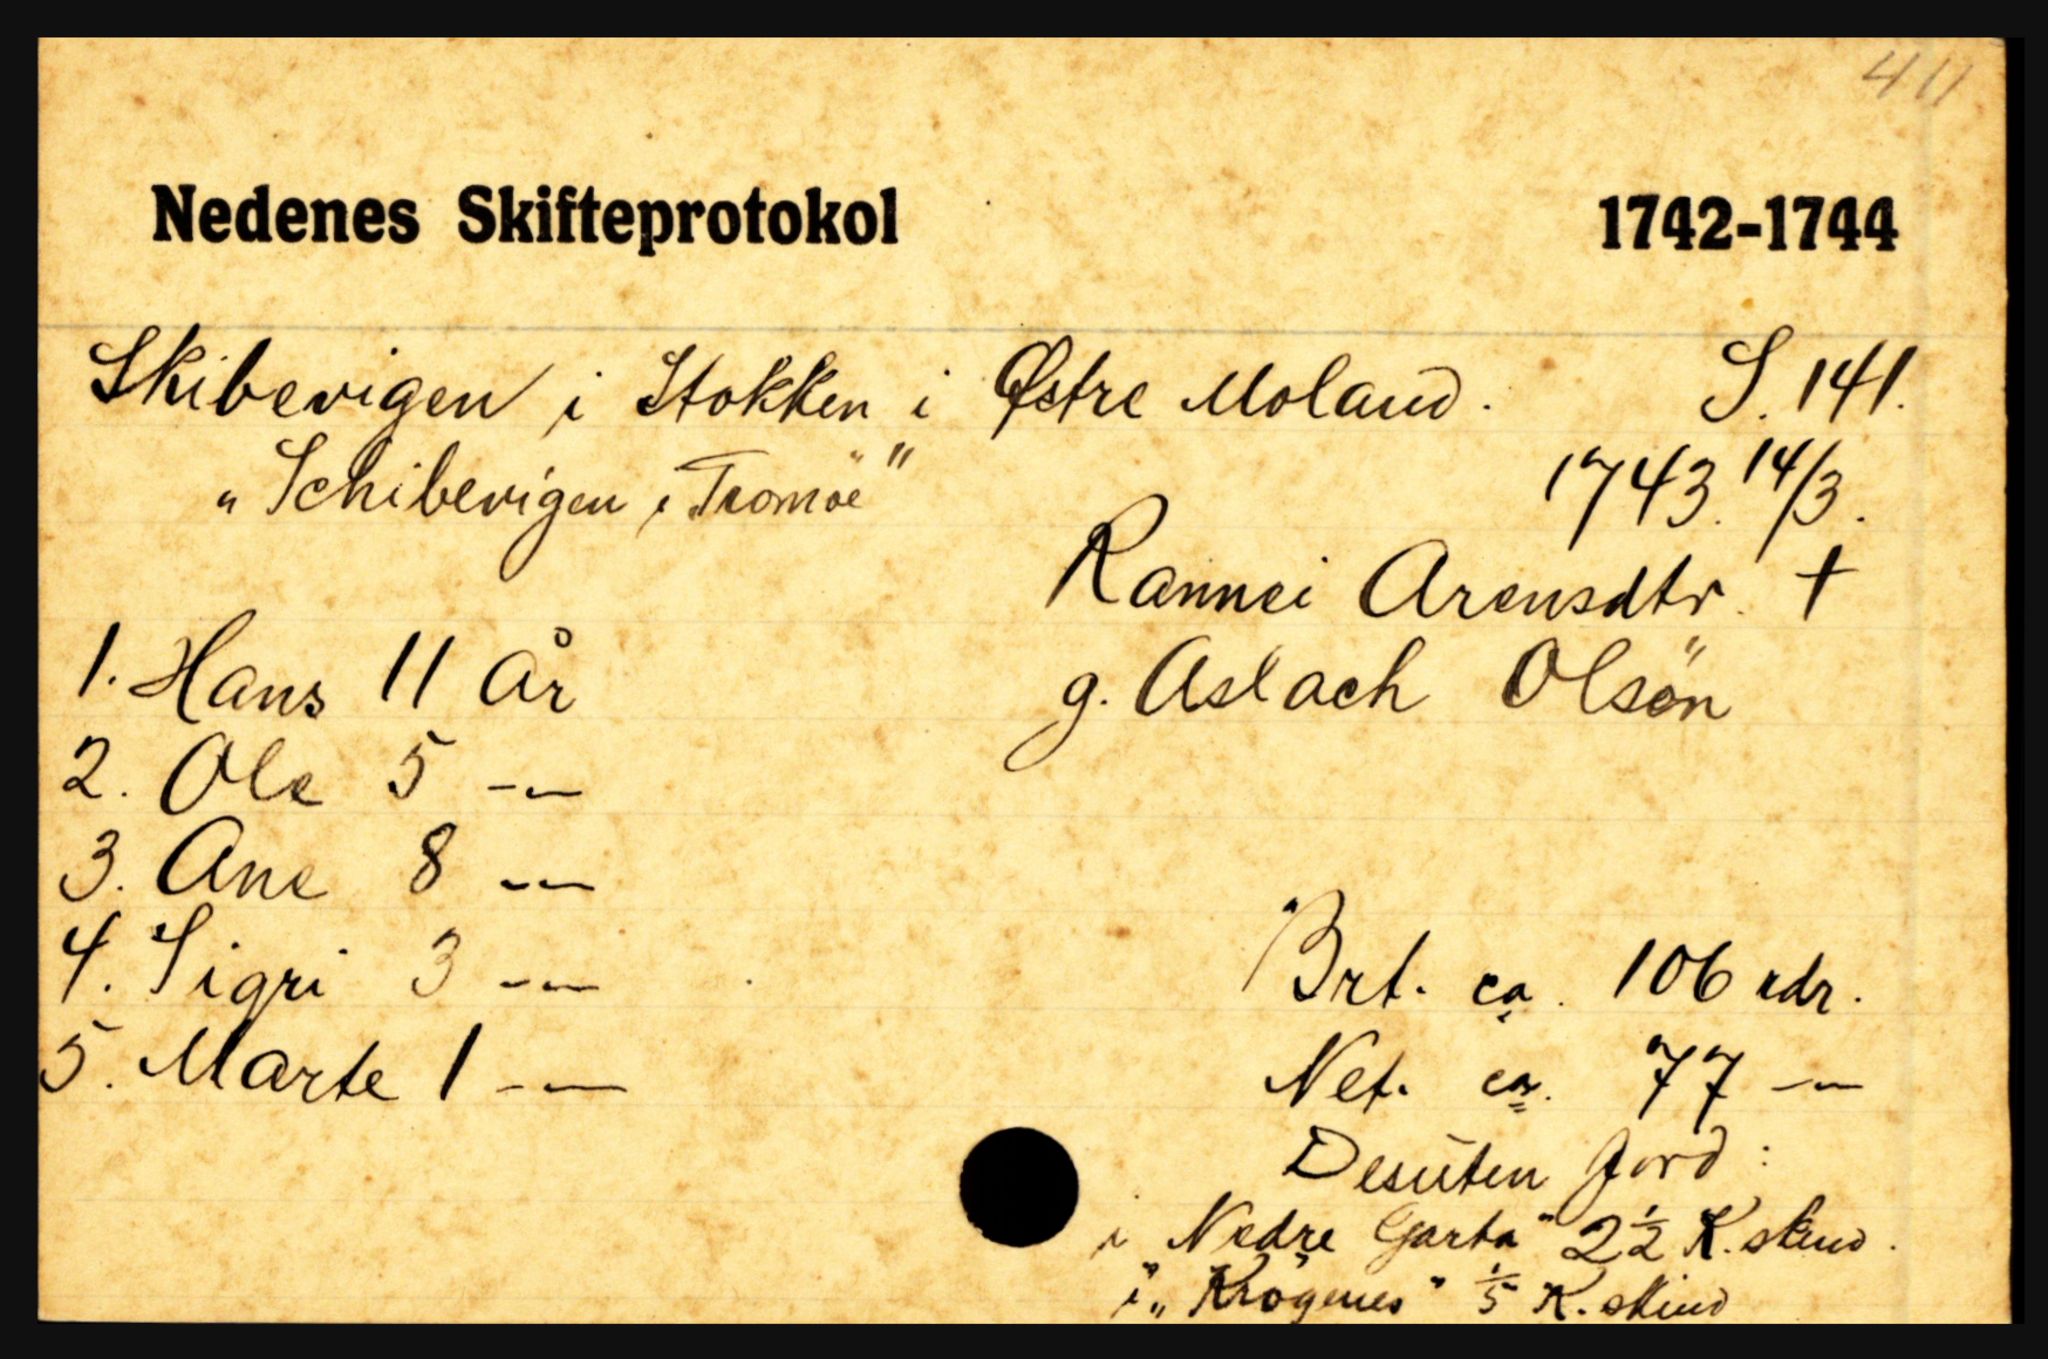 411
Nedenes Skifteprotokol 1742-1744
Skibevigen i Stokken i Østre Moland. S. 141.
„Schibevigen i Tromöe" 1743. 14/3.
Rannei Arensdtr. †
1. Hans 11 År g. Aslach Olsön
2. Ole 5 -„-
3. Ane 8 -„-
4. Sigri 3 -„- Brt. ca. 106 rdr.
5. Marte 1 -„- Net. ca. 77 -„-
Desuten Jord:
i Nedre Garta" 2½ K. skind.
i „Krögenes" 1/5 K. skind